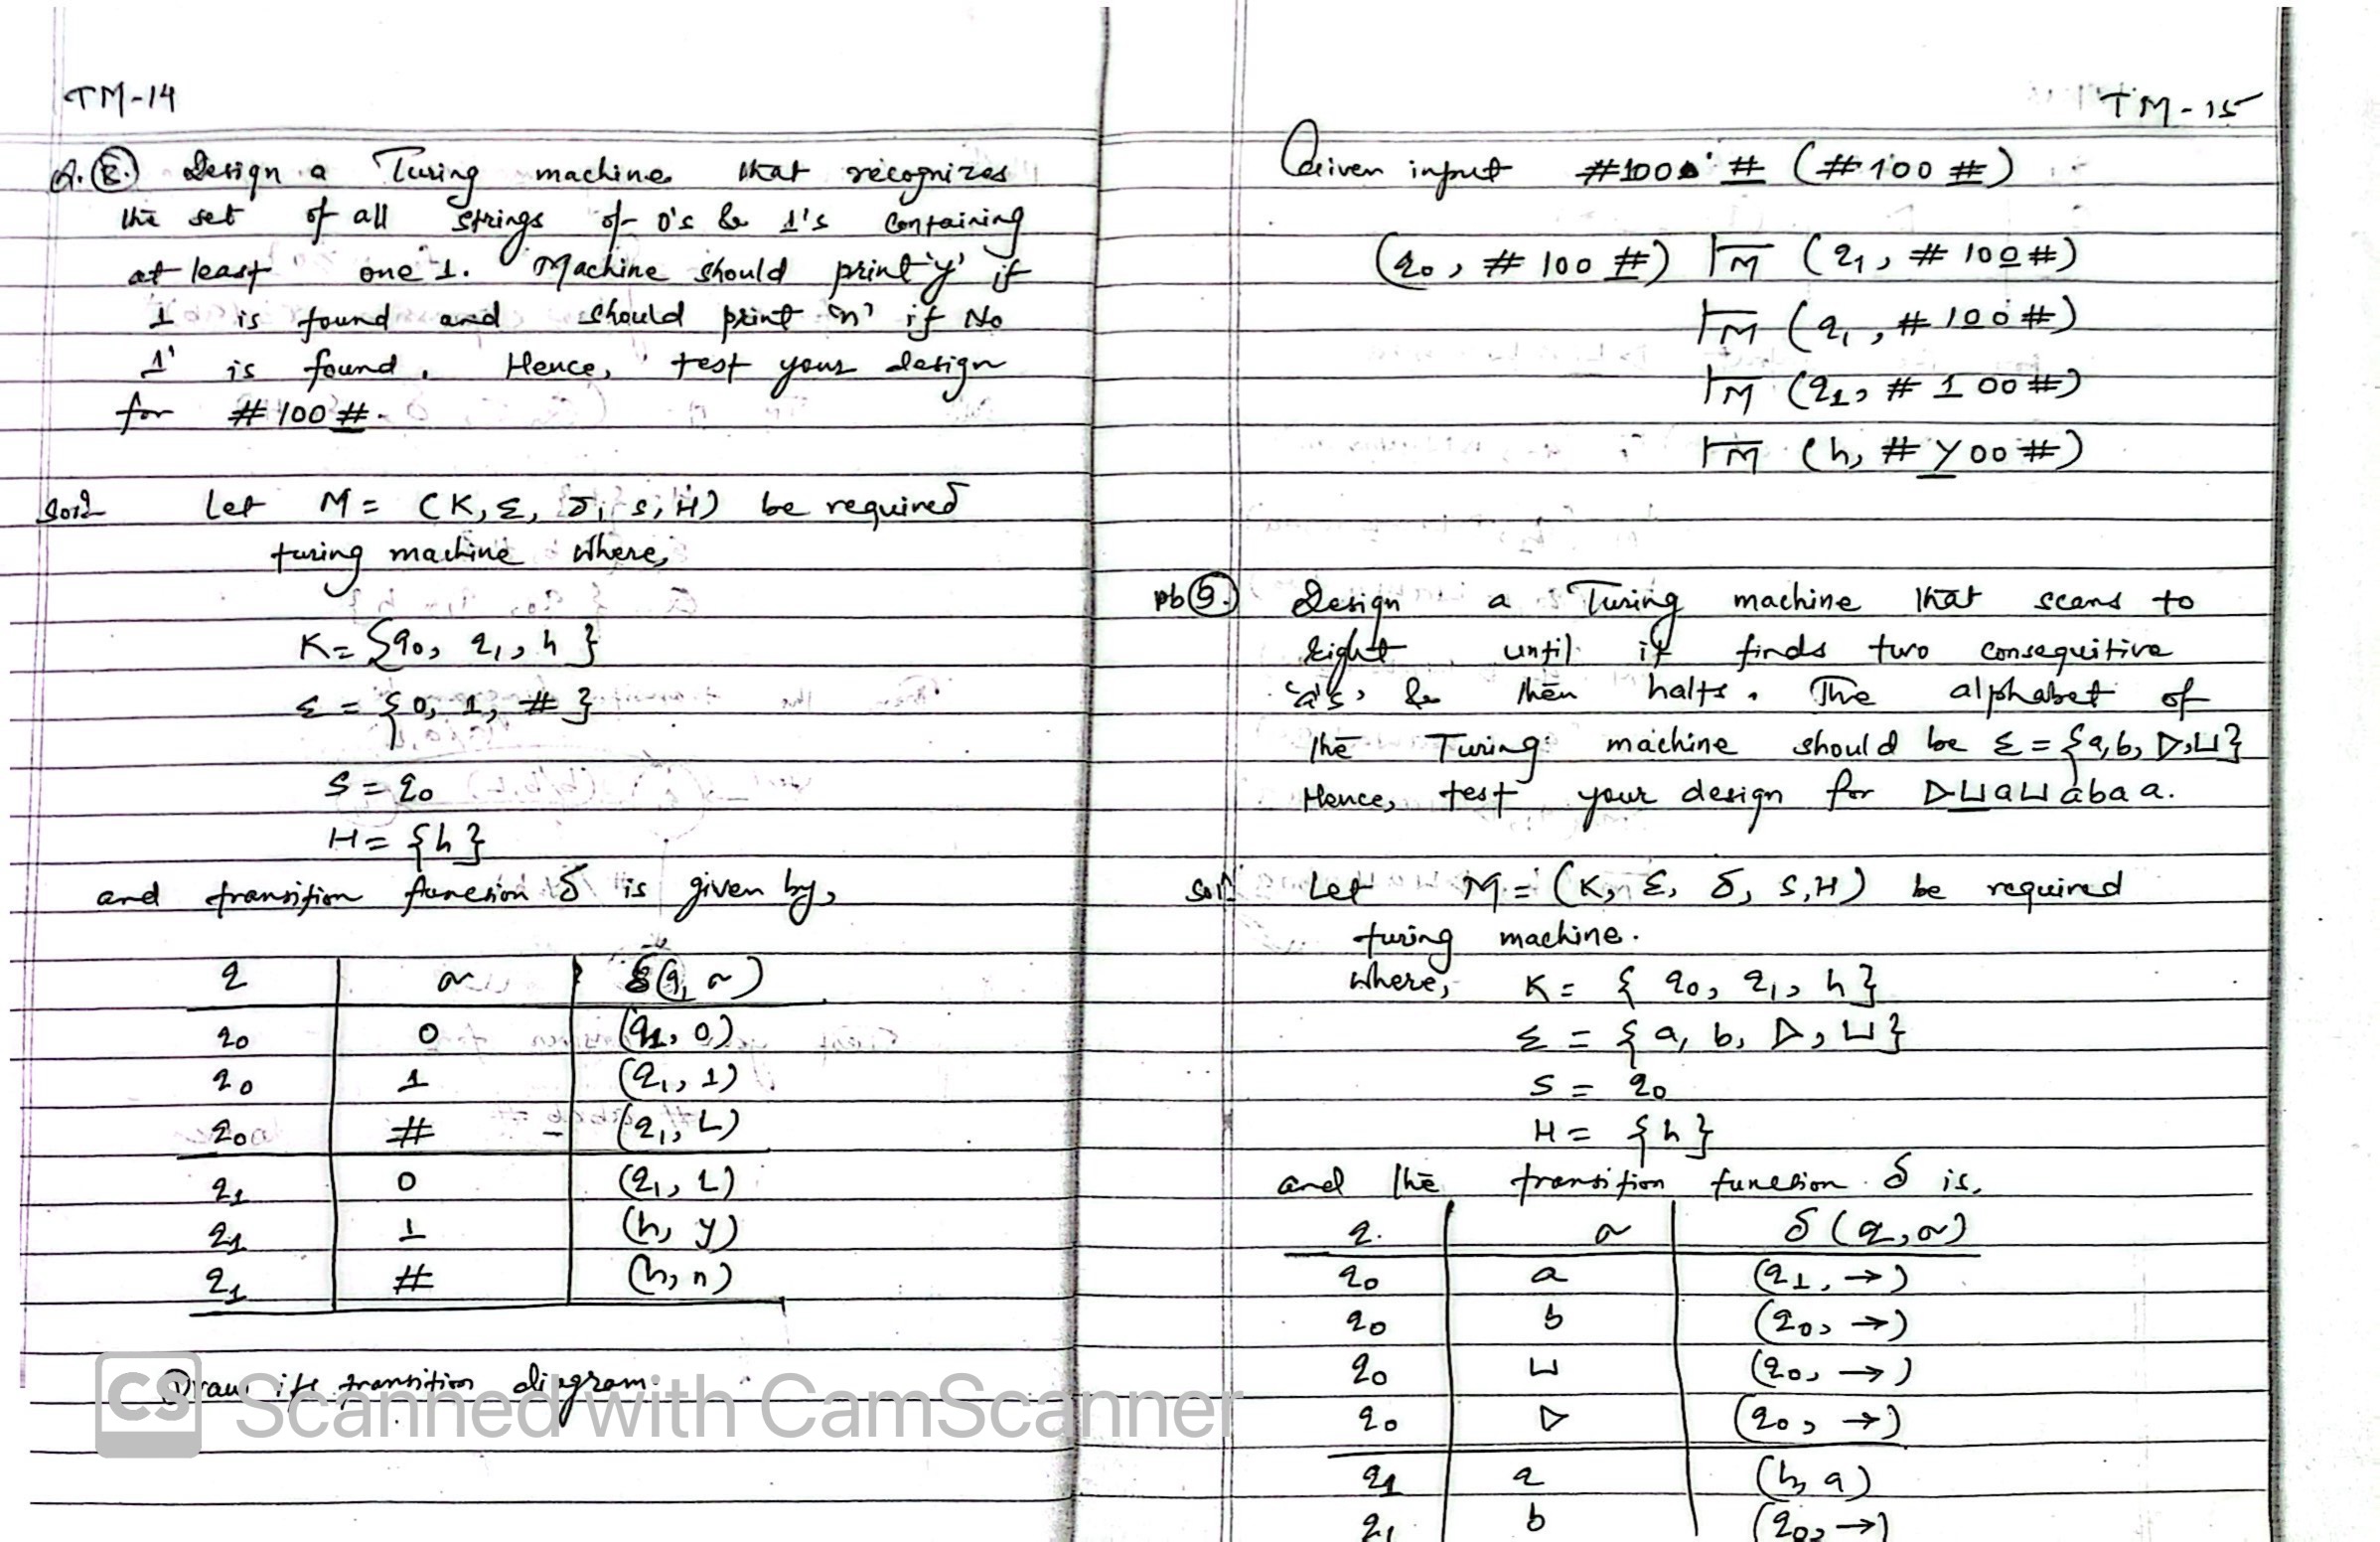 TM-14
Q.(8.) Design a Turing machine that recognizes
the set of all strings of 0's & 1's containing
at least one 1. Machine should print 'y' if
1 is found and should print 'n' if No
1' is found. Hence, test your design
for #100#.
Soln Let M = (K, Σ, δ, s, H) be required
turing machine where,
K = {q0, q1, h}
Σ = {0, 1, #}
S = q0
H = {h}
and transition funcion δ is given by,
q σ δ(q, σ)
q0 0 (q1, 0)
q0 1 (q1, 1)
q0 # (q1, L)
q1 0 (q1, L)
q1 1 (h, y)
q1 # (h, n)
Draw its transition diagram.
CS Scanned with CamScanner
TM-15
Given input #100 # (#100 #)
(q0, #100 #) ⊢M (q1, #100#)
⊢M (q1, #100#)
⊢M (q1, #100#)
⊢M (h, #y00#)
pb (9.) Design a Turing machine that scans to
right until it finds two consequitive
'a's' & then halts. The alphabet of
the Turing machine should be Σ = {a, b, ▷, ⊔}
Hence, test your design for ▷⊔a⊔abaa.
Soln. Let M = (K, Σ, δ, S, H) be required
turing machine.
where, K = {q0, q1, h}
Σ = {a, b, ▷, ⊔}
S = q0
H = {h}
and the transition function δ is,
q. σ δ(q, σ)
q0 a (q1, →)
q0 b (q0, →)
q0 ⊔ (q0, →)
q0 ▷ (q0, →)
q1 a (h, a)
q1 b (q0, →)